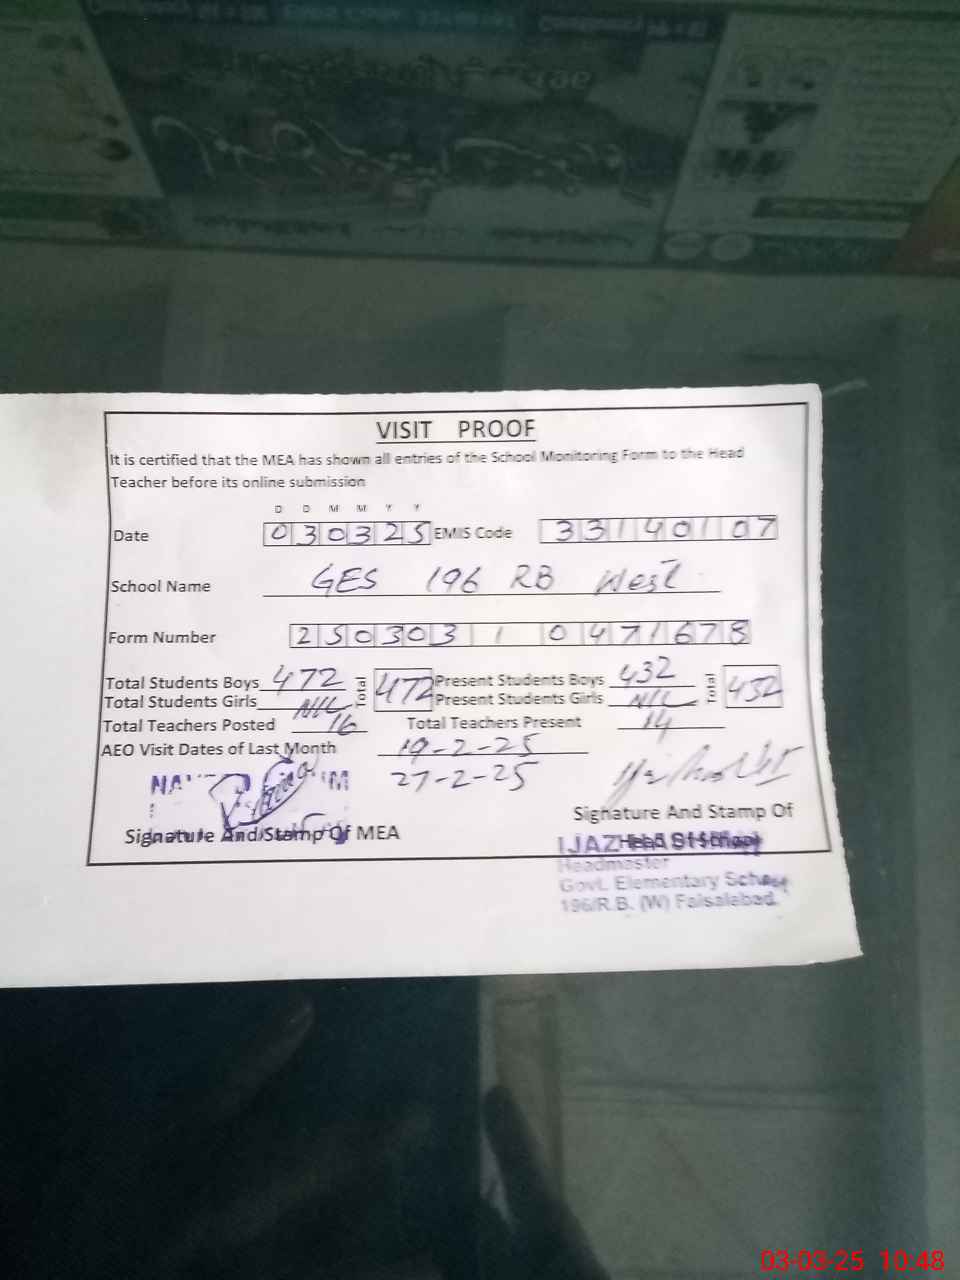 VISIT PROOF
It is certified that the MEA has shown all entries of the School Monitoring Form to the Head
Teacher before its online submission
D D M M Y Y
Date 030325 EMIS Code 33140107
School Name GES 196 RB West
Form Number 250303 1 0471678
Total Students Boys 472 Total 472 Present Students Boys 432 Total 432
Total Students Girls NIL Present Students Girls NIL
Total Teachers Posted 16 Total Teachers Present 14
AEO Visit Dates of Last Month 19-2-25
27-2-25
Signature And Stamp Of MEA
Signature And Stamp Of
Head Of School
IJAZ
Headmaster
Govt. Elementary School
196/R.B. (W) Faisalabad.
03-03-25 10:48